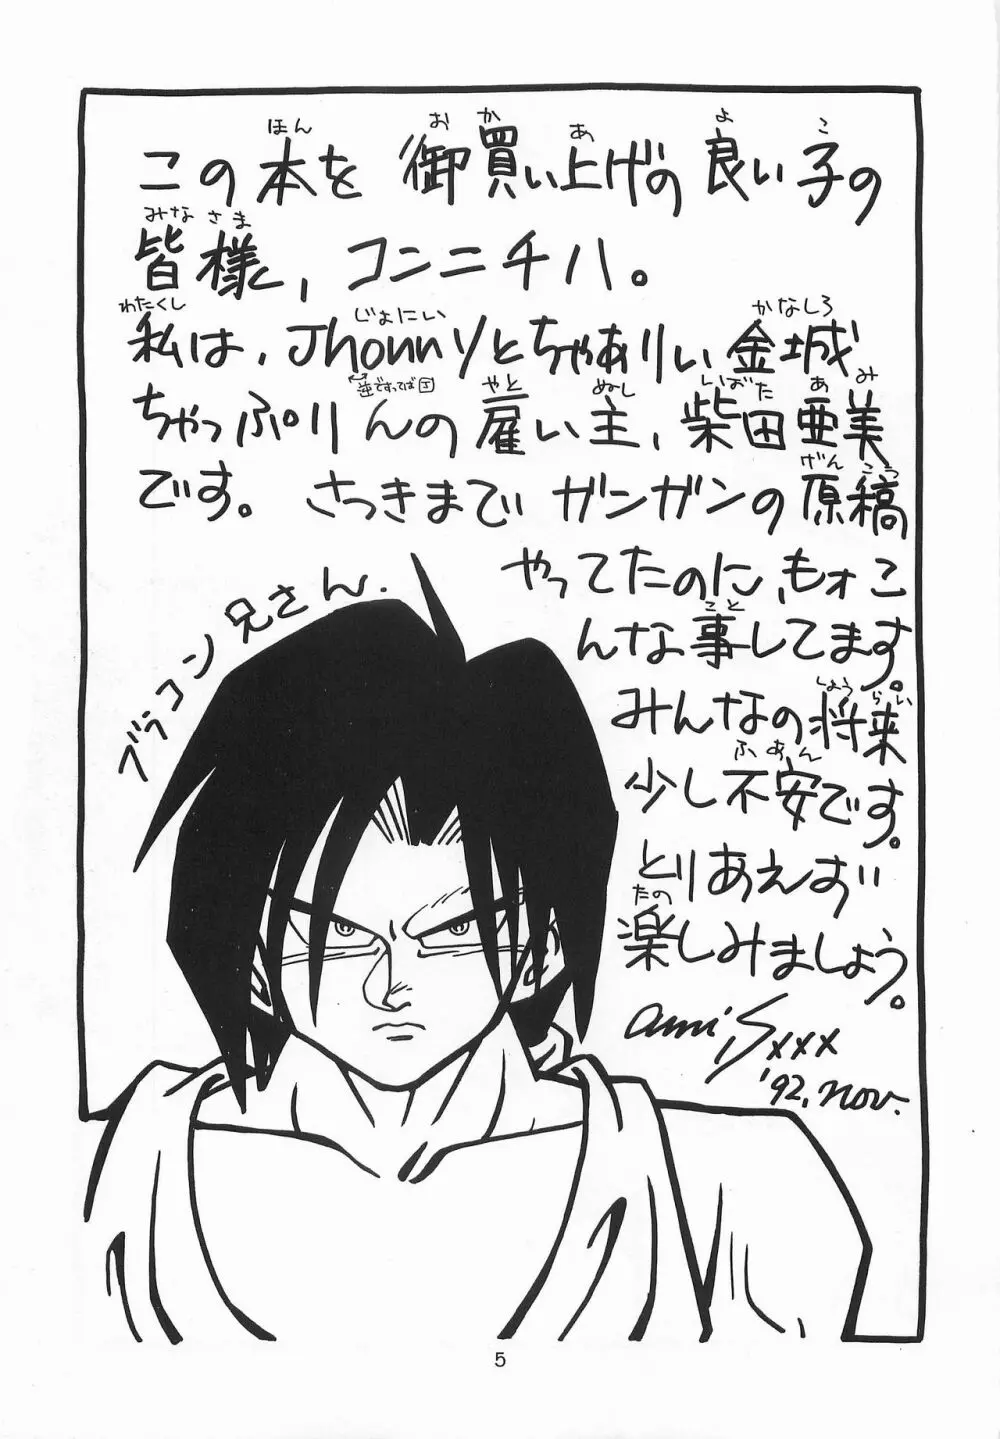 この本を御買い上げの良い子の
皆様、コンニチハ。
私は、Jhonnyとちゃありい金城
ちゃっぷりんの雇い主、柴田亜美
です。さっきまでガンガンの原稿
やってたのに、もォこ
んな事してます。
みんなの将来
少し不安です。
とりあえず
楽しみましょう。
ami Sxxx
'92, nov.
ブラコン兄さん.
5